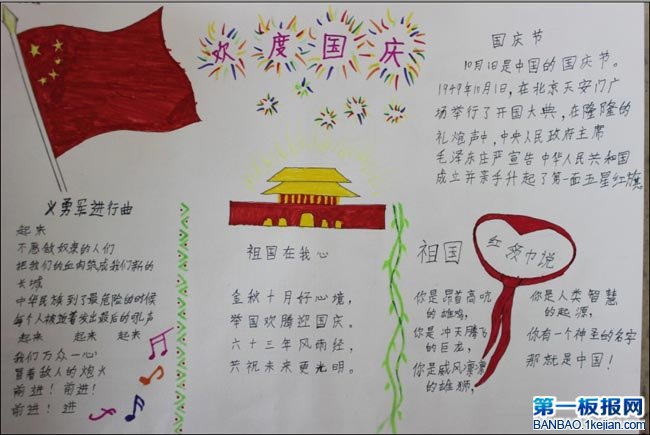 欢度国庆
国庆节
10月1日是中国的国庆节。
1949年10月1日,在北京天安门广
场举行了开国大典,在隆隆的
礼炮声中,中央人民政府主席
毛泽东庄严宣告中华人民共和国
成立并亲手升起了第一面五星红旗
义勇军进行曲
起来
不愿做奴隶的人们
把我们的血肉筑成我们新的
长城
中华民族到了最危险的时候
每个人被迫着发出最后的吼声
起来 起来 起来
我们万众一心
冒着敌人的炮火
前进! 前进!
前进! 进
祖国在我心
金秋十月好心境,
举国欢腾迎国庆。
六十三年风雨经,
共祝未来更光明。
祖国
红领巾说
你是昂首高吭
的雄鸡,
你是冲天腾飞
的巨龙,
你是威风凛凛
的雄狮,
你是人类智慧
的起源,
你有一个神圣的名字
那就是中国!
第一板报网
BANBAO.1kejian.com